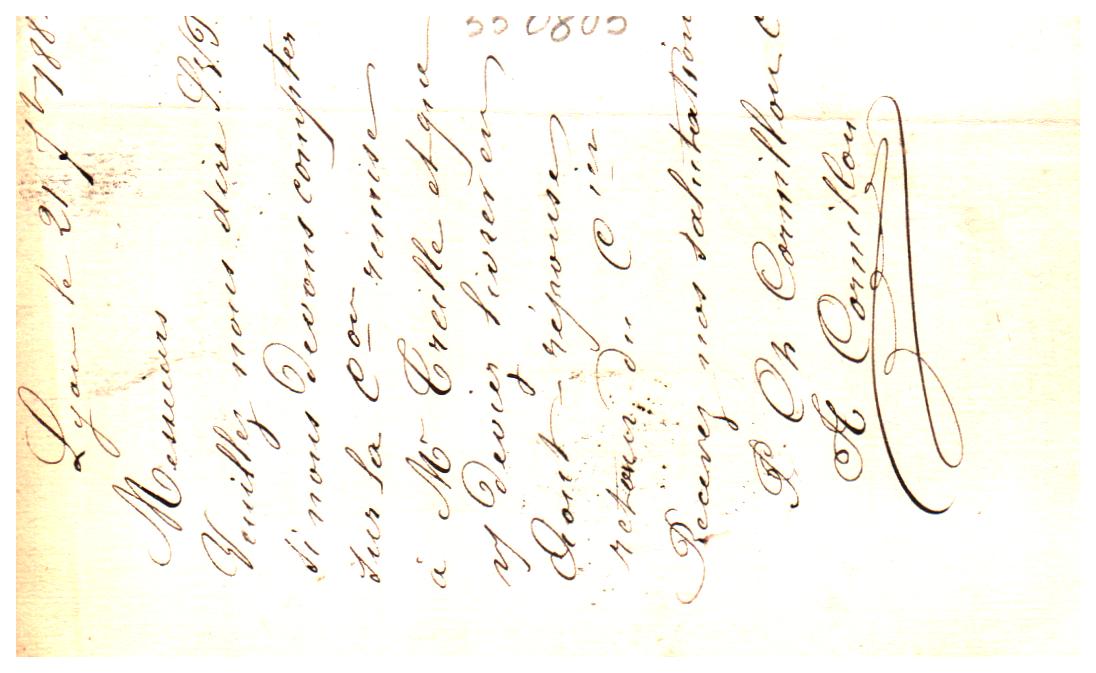 Lyon le 21 7b 188
Messieurs
Veuillez nous dire S.V.P.
si nous devons compter
sur la Con remise
à Mr Treille et que
vs deviez livrer en
Aout réponse
retour du Cier
Recevez nos salutations
P. Ch Cornillon
A Cornillon
550805